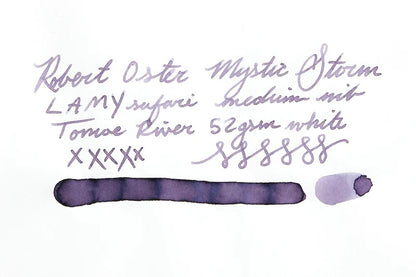 Robert Oster Mystic Storm
LAMY safari medium nib
Tomoe River 52gsm white
xxxxx